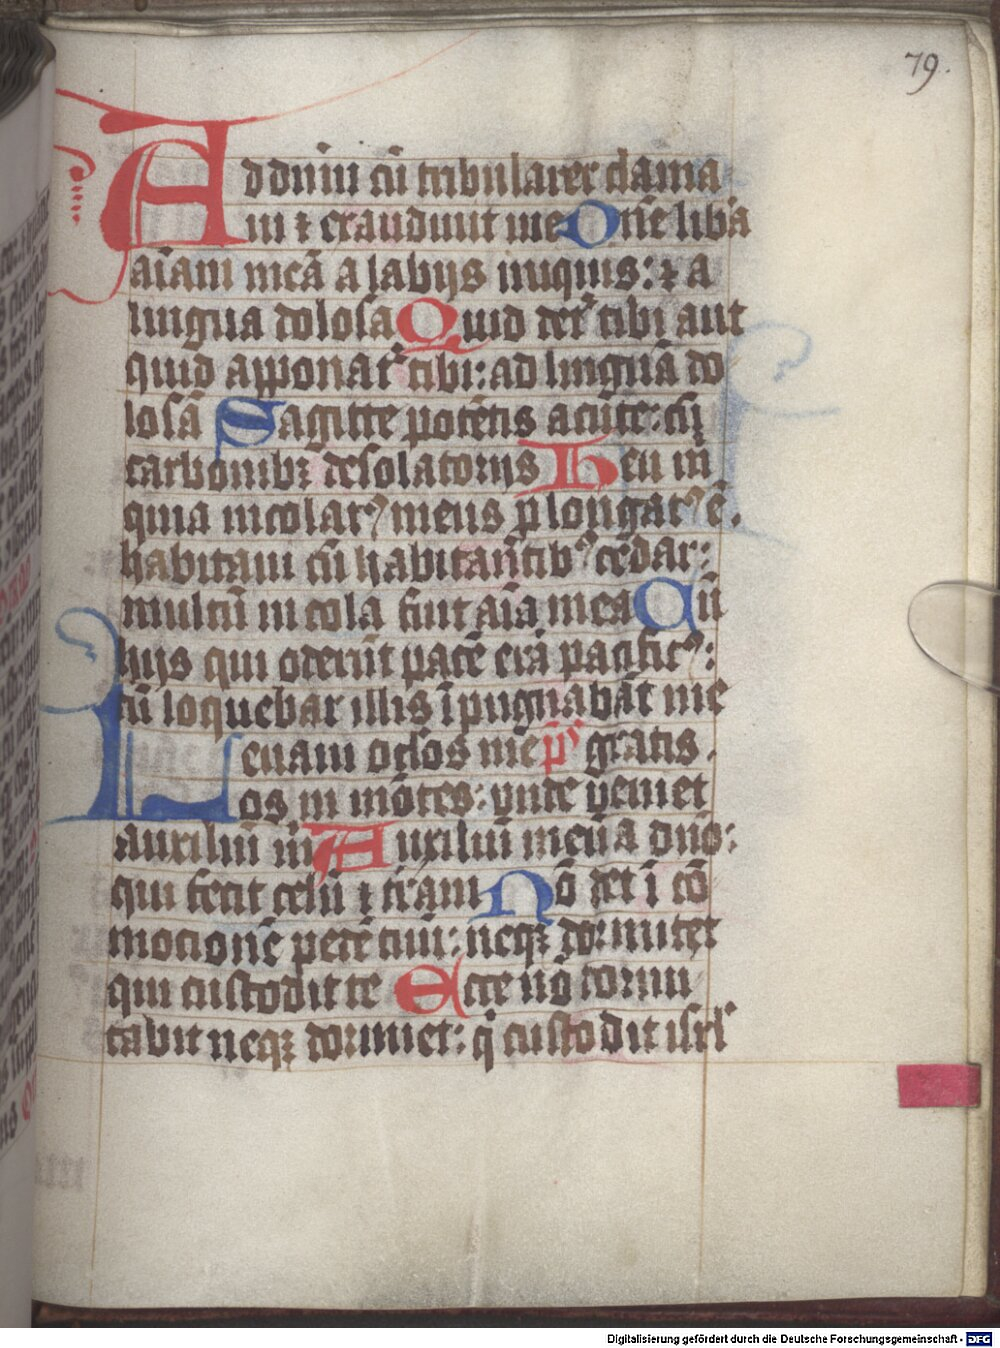 79.
Ad dn̄m cū tribularer clāma
ui ⁊ exaudiuit me Dn̄e lib̄a
aīam meā a labijs iniquis: ⁊ a
lingua dolosa Quid det͛ tibi aut
quid apponat͛ tibi: ad linguā do
losā Sagitte potētis acute: cū
carbonibꝫ desolatorijs Heu m̄
quia incolatꝰ meus ꝓlongatꝰ ē.
habitaui cū habitātibꝰ cedar:
multū incola fuit aīa mea Cū
hijs qui oderūt pacē erā pacificꝰ:
cū loquebar illis īpugnabāt me
Leuaui oc̄los me p̄s gratis.
os in mōtes: vnde veniet
auxiliū m̄ Auxiliū meū a dn̄o:
qui fecit celū ⁊ t̄ram Nō det ī cō
mocionē pedē tuū: neqꝫ dormitet
qui custodit te Ecce nō dormi
tabit neqꝫ dormiet: q̄ custodit isrl̄
Digitalisierung gefördert durch die Deutsche Forschungsgemeinschaft - DFG